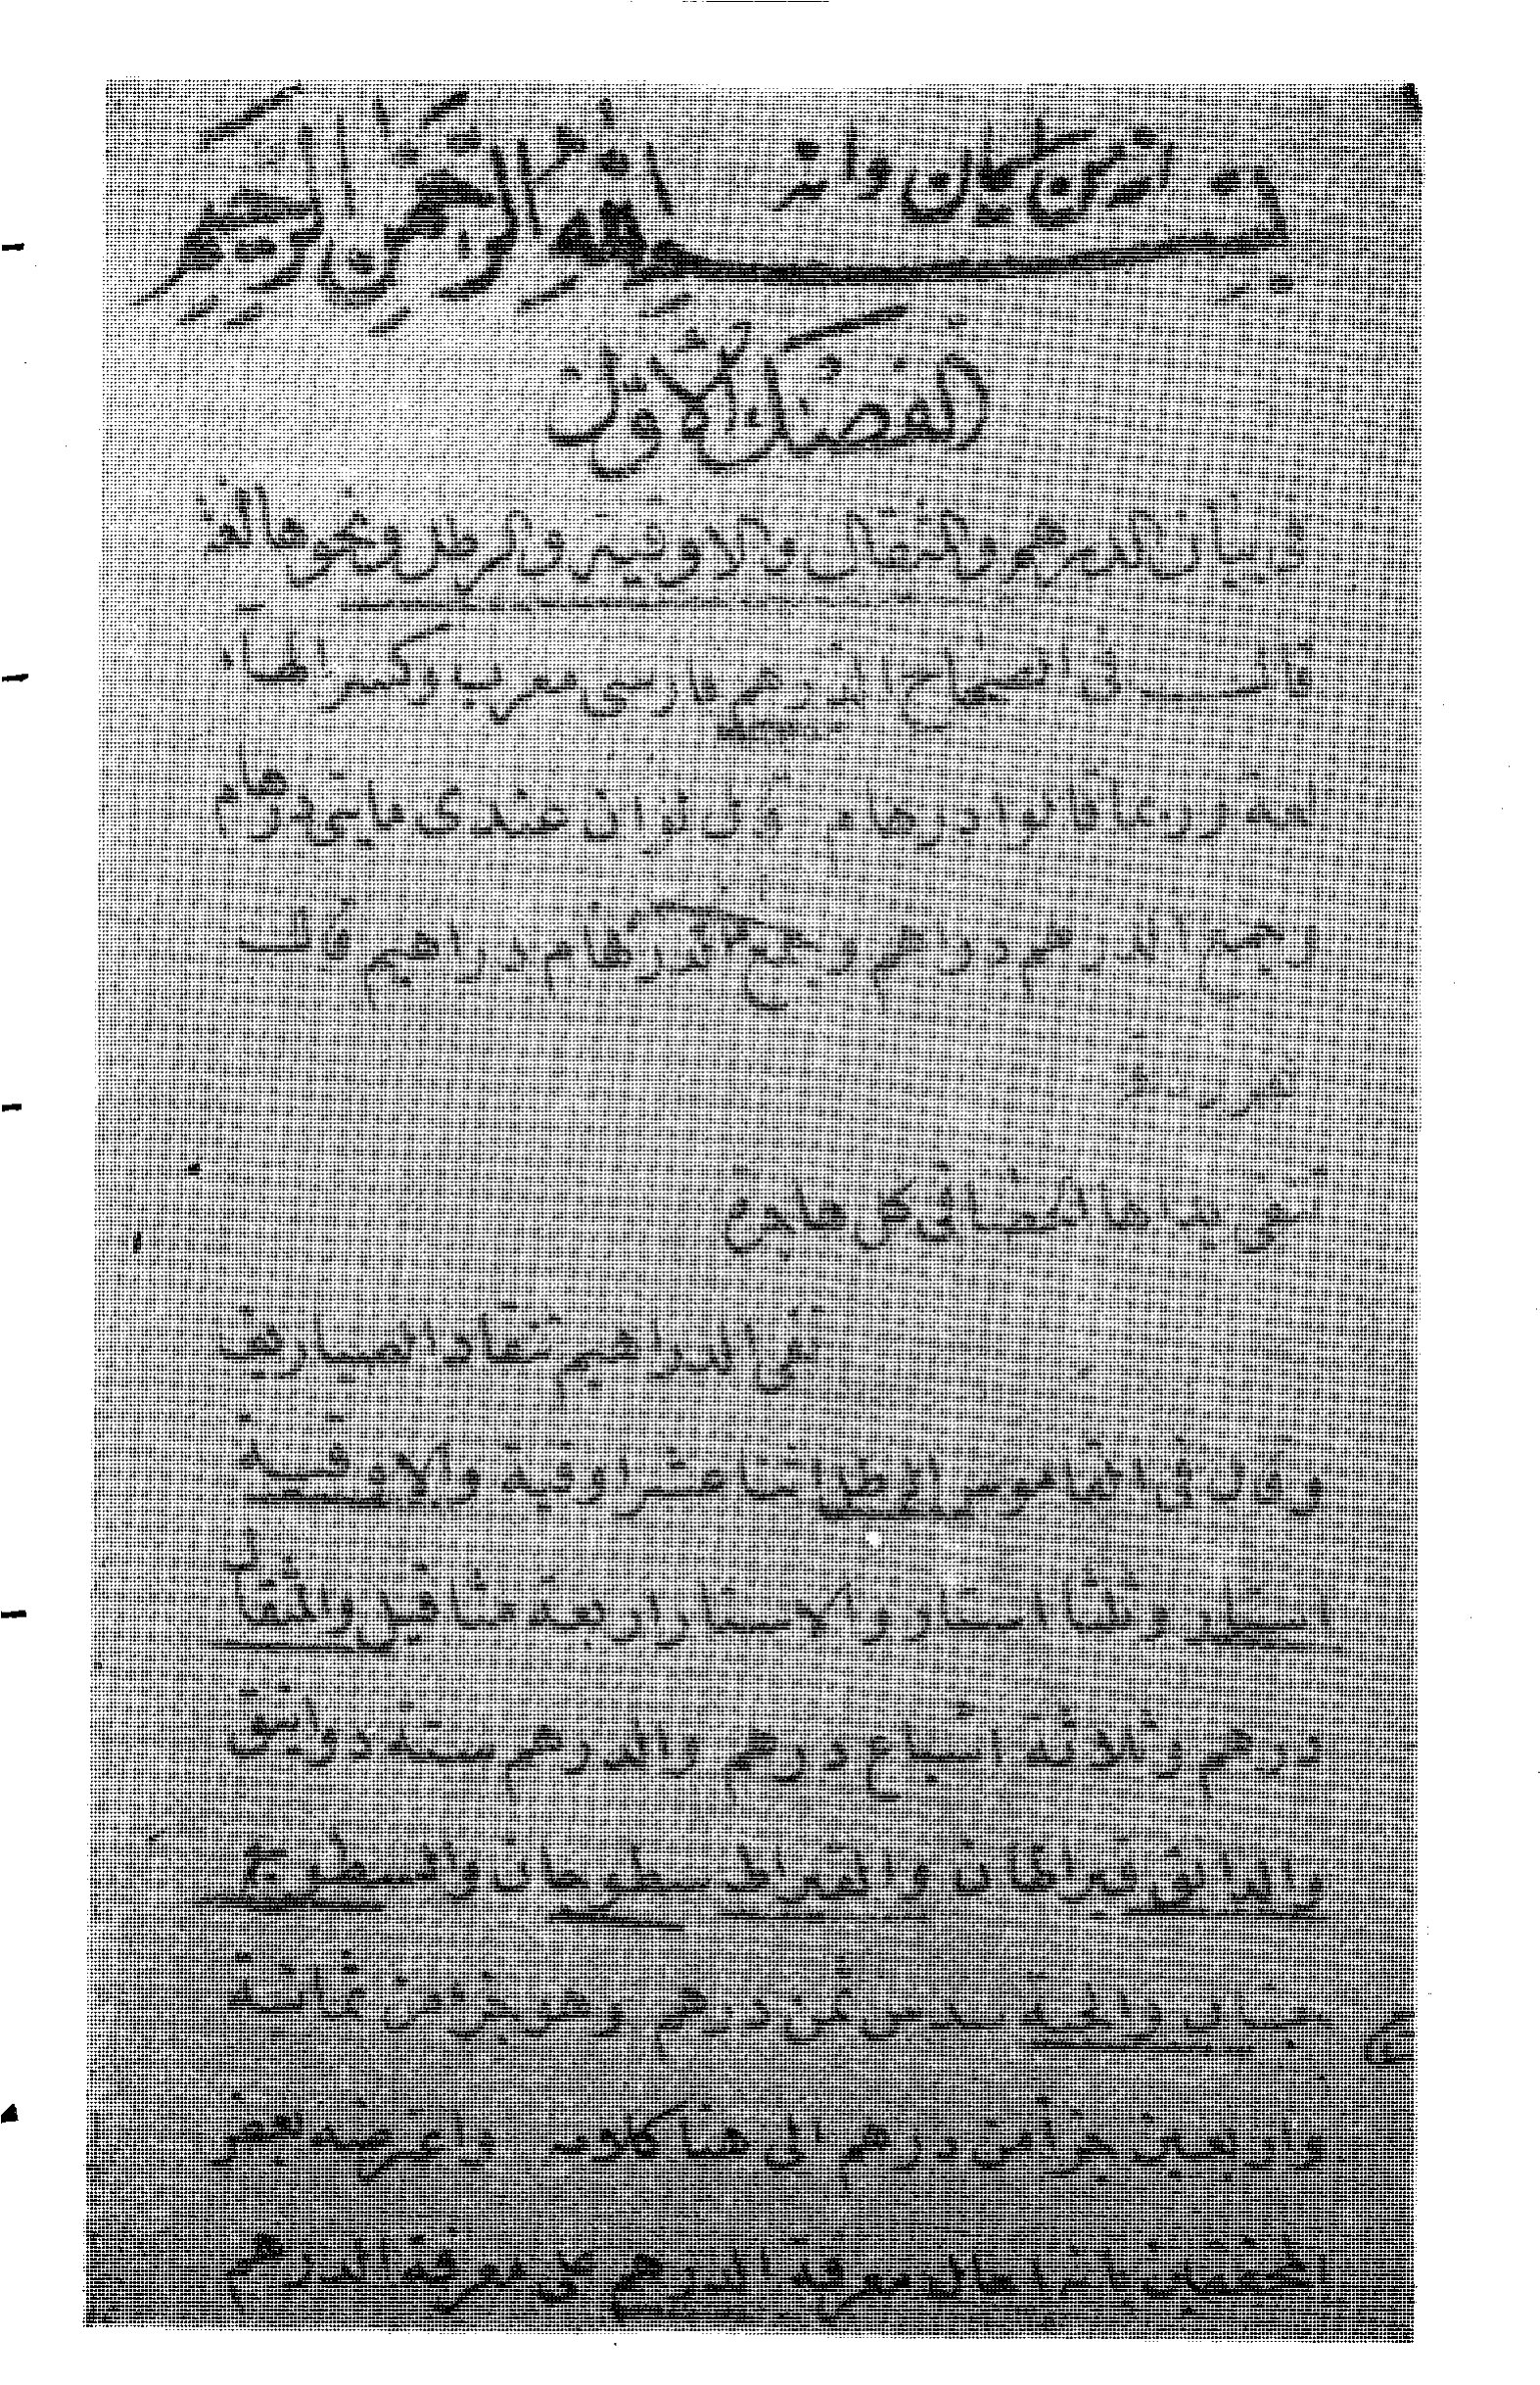 انه من سليمان وانه
بسم الله الرحمن الرحيم
الفصل الأول
في بيان الدرهم والمثقال والاوقية والرطل ونحوها
قال في الصحاح الدرهم فارسي معرب وكسر الهاء
لغة وربما قالوا درهام قال لو ان عندي مايتي درهام
وجمع الدرهم دراهم وجمع الدرهام دراهيم قال
تنفي يداها الحصا في كل هاجرة
نفي الدراهيم تنقاد الصياريف
وقال في القاموس الرطل اثنا عشر اوقية والاوقية
استار وثلثا استار والاستار اربعة مثاقيل والمثقال
درهم وثلاثة اسباع درهم والدرهم ستة دوانيق
والدانق قيراطان والقيراط طسوجان والطسوج
حبتان والحبة سدس ثمن درهم وهو جزء من ثمانية
واربعين جزأ من درهم الى هنا كلامه واعترضه بعض
بانه احال معرفة الدرهم على معرفة الدرهم